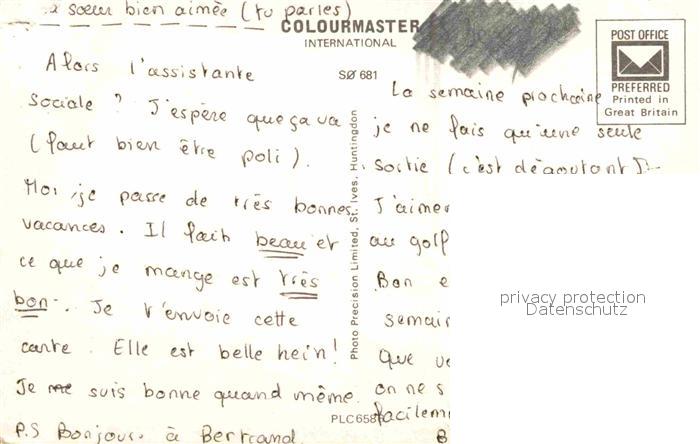 sœur bien aimée (tu parles)
COLOURMASTER
INTERNATIONAL
SØ 681
POST OFFICE
PREFERRED
Printed in
Great Britain
Alors l'assistante
sociale ? J'espère que ça va
(faut bien être poli).
Moi je passe de très bonnes
vacances. Il fait beau et
ce que je mange est très
bon. Je t'envoie cette
carte. Elle est belle hein!
Je suis bonne quand même.
P.S Bonjour à Bertrand.
Photo Precision Limited, St. Ives, Huntingdon
PLC6586
La semaine prochaine
je ne fais qu'une seule
sortie (c'est dégoutant)
J'aimer
au golf
Bon e
semain
Que ve
on ne s
facilem
B
privacy protection
Datenschutz